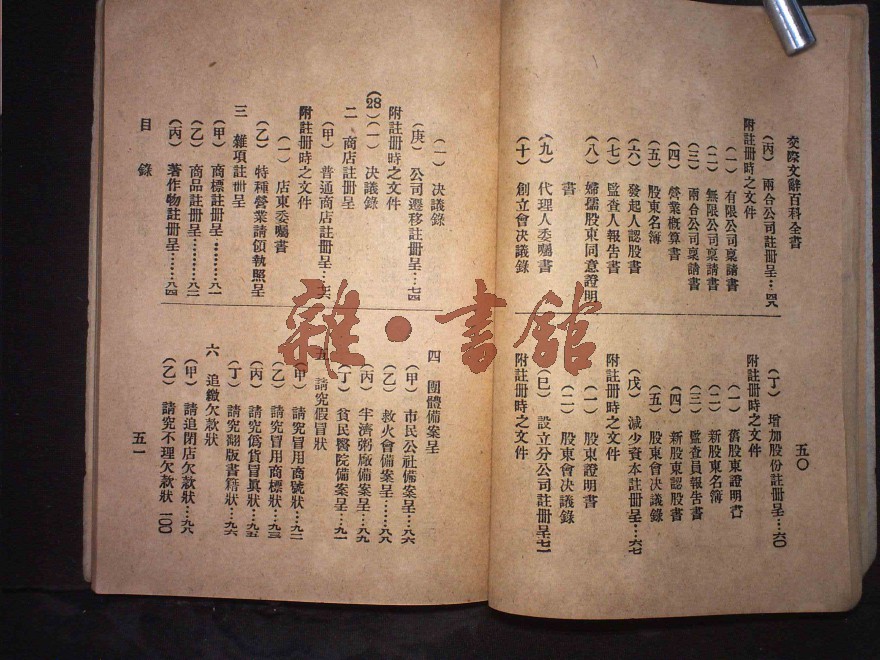 交際文辭百科全書
五〇
(丙) 兩合公司註冊呈…四八
附註冊時之文件
(一) 有限公司稟請書
(二) 無限公司稟請書
(三) 兩合公司稟請書
(四) 營業概算書
(五) 股東名簿
(六) 發起人認股書
(七) 監查人報告書
(八) 婦孺股東同意證明
書
(九) 代理人委囑書
(十) 創立會决議錄
(丁) 增加股份註冊呈…六〇
附註冊時之文件
(一) 舊股東證明書
(二) 新股東名簿
(三) 監查員報告書
(四) 新股東認股書
(五) 股東會决議錄
(戊) 減少資本註冊呈…六七
附註冊時之文件
(一) 股東證明書
(二) 股東會决議錄
(巳) 設立分公司註冊呈七一
附註冊時之文件
(一) 决議錄
(庚) 公司遷移註冊呈…七四
附註冊時之文件
(28)
(一) 决議錄
二 商店註冊呈
(甲) 普通商店註冊呈…七六
附註冊時之文件
(一) 店東委囑書
(乙) 特種營業請領執照呈
三 雜項註冊呈
(甲) 商標註冊呈………八一
(乙) 商品註冊呈………八二
(丙) 著作物註冊呈……八四
目錄
四 團體備案呈
(甲) 市民公社備案呈…八六
(乙) 救火會備案呈……八八
(丙) 平濟粥廠備案呈…八九
(丁) 貧民醫院備案呈…九一
五 請究假冒狀
(甲) 請究冒用商號狀…九二
(乙) 請究冒用商標狀…九三
(丙) 請究僞貨冒眞狀…九五
(丁) 請究翻版書籍狀…九六
六 追繳欠款狀
(甲) 請追閉店欠款狀…九八
(乙) 請究不理欠款狀 一〇〇
五一
雜・書館